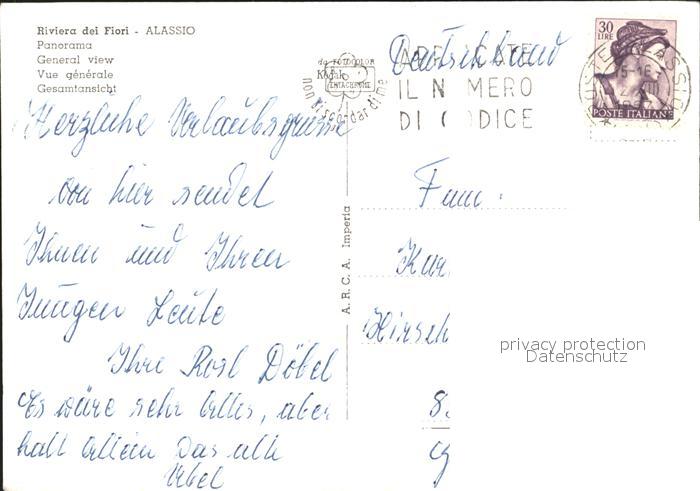 Riviera dei Fiori - ALASSIO
Panorama
General view
Vue générale
Gesamtansicht
da FOTOCOLOR
Kodak
EKTACHROME
non ricordar di me
Deutschland
IL NUMERO
DI CODICE
30
LIRE
POSTE ITALIANE
Herzliche Urlaubsgrüsse
von hier sendet
Ihnen und Ihren
Jungen Leute
Ihre Rosl Döbel
Es wäre sehr alles, aber
halt allein das alte
Übel
A.R.C.A. Imperia
Fam.
Kur
Hirsch
8.
privacy protection
Datenschutz